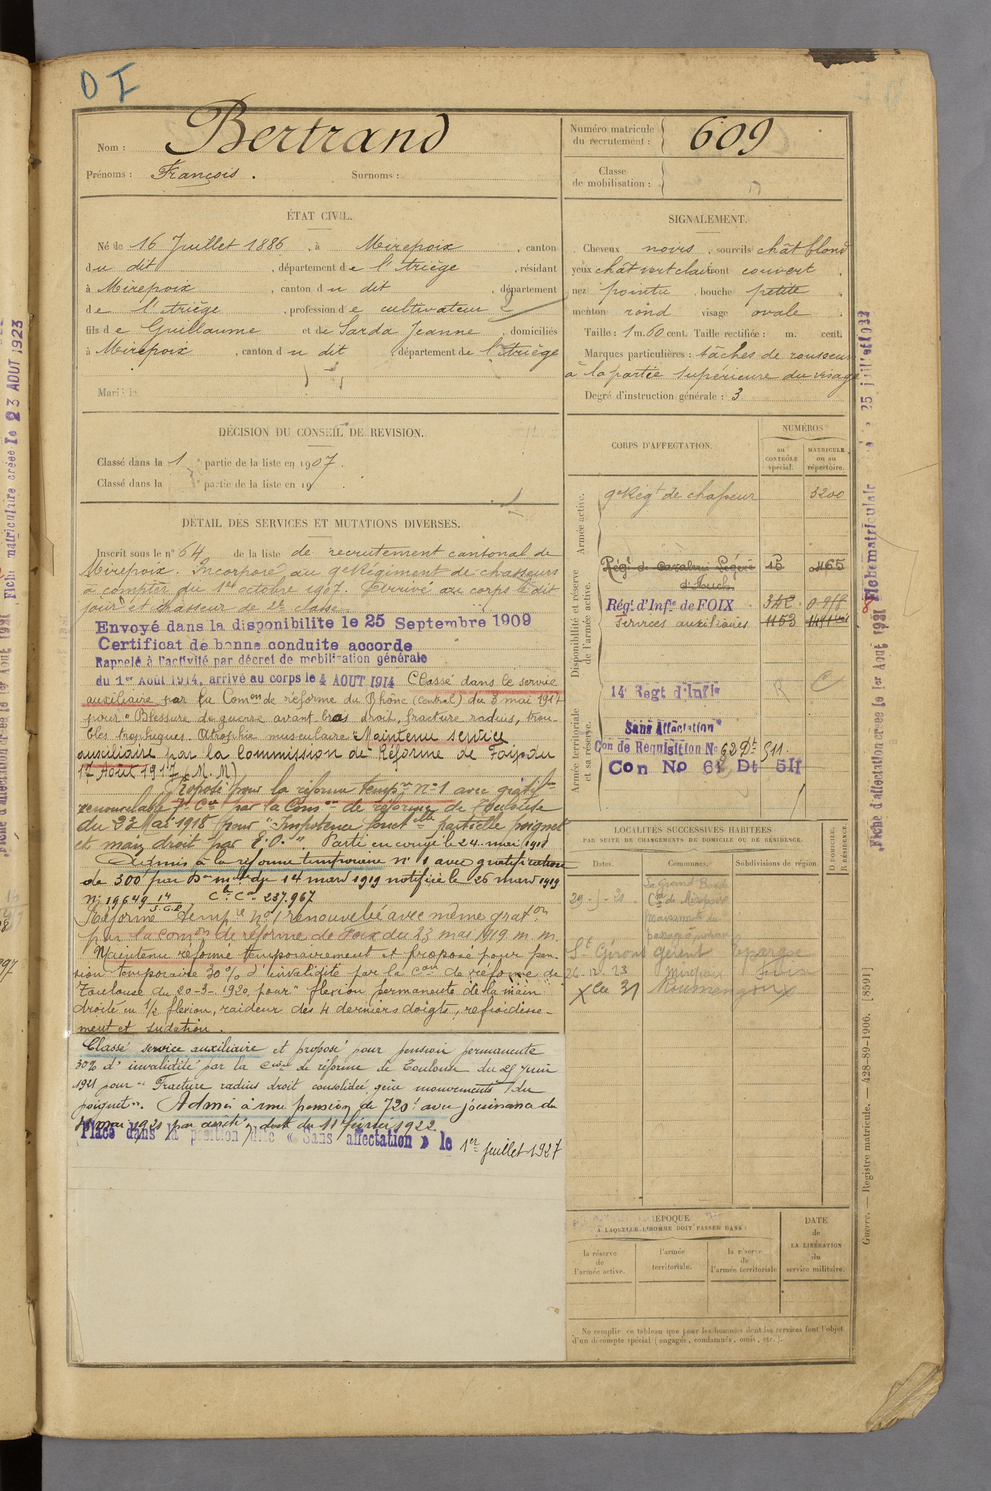 DI
Nom : Bertrand
Prénoms : François . Surnoms :
Numéro matricule du recrutement : 609
Classe de mobilisation :
ÉTAT CIVIL.
Né le 16 Juillet 1886 , à Mirepoix , canton
du dit , département de l'Ariège , résidant
à Mirepoix , canton du dit , département
de l'Ariège , profession de cultivateur
fils de Guillaume et de Sarda Jeanne , domiciliés
à Mirepoix , canton du dit , département de l'Ariège
Mari
DÉCISION DU CONSEIL DE REVISION.
Classé dans la 1 partie de la liste en 1907.
Classé dans la partie de la liste en 19
DÉTAIL DES SERVICES ET MUTATIONS DIVERSES.
Inscrit sous le n° 64 de la liste de recrutement cantonal de
Mirepoix. Incorporé au 9e Régiment de chasseurs
à compter du 1er octobre 1907. Arrivé au corps le dit
jour et chasseur de 2e classe.
Envoyé dans la disponibilité le 25 Septembre 1909
Certificat de bonne conduite accordé
Rappelé à l'activité par décret de mobilisation générale
du 1er Août 1914, arrivé au corps le 4 AOUT 1914 Classé dans le service
auxiliaire par la Comon de réforme du Rhône (Central) du 3 mai 1917
pour "Blessure de guerre avant bras droit, fracture radius, trou-
bles trophiques. Atrophie musculaire. Maintenu service
auxiliaire par la Commission de Réforme de Foix du
17 Août 1917 (M.M)
Proposé pour la réforme tempre n°1 avec gratifon
renouvelable 7e Cie par la Comon de réforme de Toulouse
du 23 Mai 1918 pour "Impotence fonctelle partielle poignet
et main droit par E.O." Parti en congé le 24 mai 1918
Admis à la réforme temporaire n°1 avec gratification
de 300f par Don mlle du 14 mars 1919 notifiée le 26 mars 1919
n° 19649 Ct. Cn 237.967
Réformé tempre n°1 renouvelé avec même graton
par la Comon de réforme de Foix du 23 mai 1919 m. m.
Maintenu réformé temporairement et proposé pour pen-
sion temporaire 30% d'invalidité par la Con de réforme de
Toulouse du 20-3-1920 pour "flexion permanente de la main
droite en 1/2 flexion, raideur des 4 derniers doigts, refroidisse-
ment et sudation.
Classé service auxiliaire et proposé pour pension permanente
30% d'invalidité par la Con de réforme de Toulouse du 25 Juin
1921 pour "Fracture radius droit consolidée, gêne mouvements du
poignet". Admis à une pension de 720f avec jouissance du
1921 par arrêté du 11 février 1922
Placé dans la position dite « Sans affectation » le 1er juillet 1927
SIGNALEMENT.
Cheveux noirs , sourcils chât blond
yeux chât vert clair front couvert
nez pointu , bouche petite
menton rond visage ovale
Taille : 1 m. 60 cent. Taille rectifiée : m. cent.
Marques particulières : tâches de rousseur
à la partie supérieure du visage
Degré d'instruction générale : 3
CORPS D'AFFECTATION.
NUMÉROS
au CONTRÔLE spécial.
MATRICULE ou au répertoire.
Armée active.
9e Régt de chasseur 3200
Disponibilité et réserve de l'armée active.
Régt de cavalerie Légère 15
d'Auch
Régt d'Infie de FOIX
Services auxiliaires 1153
Armée territoriale et sa réserve.
14e Regt d'Infie
Sans Affectation
Con de Réquisition No 62 Dt 511
Con No 61 Dt 511
LOCALITÉS SUCCESSIVES HABITÉES
PAR SUITE DE CHANGEMENTS DE DOMICILE OU DE RÉSIDENCE.
Dates. Communes. Subdivisions de région. D. DOMICILE. R. RÉSIDENCE.
St Girons gérant Epargne
26-12-23 Mirepoix Foix
ÉPOQUE
À LAQUELLE L'HOMME DOIT PASSER DANS :
la réserve de l'armée active.
l'armée territoriale.
la réserve de l'armée territoriale
DATE de LA LIBÉRATION du service militaire.
Ne remplir ce tableau que pour les hommes dont les services font l'objet
d'un décompte spécial (engagés, condamnés, omis, etc.).
Guerre. — Registre matricule. — 428-89-1906. [8591]
Fiche d'affectation créée le 1er Août 1931
Fiche matriculaire
Fiche matriculaire créée le 23 AOUT 1923